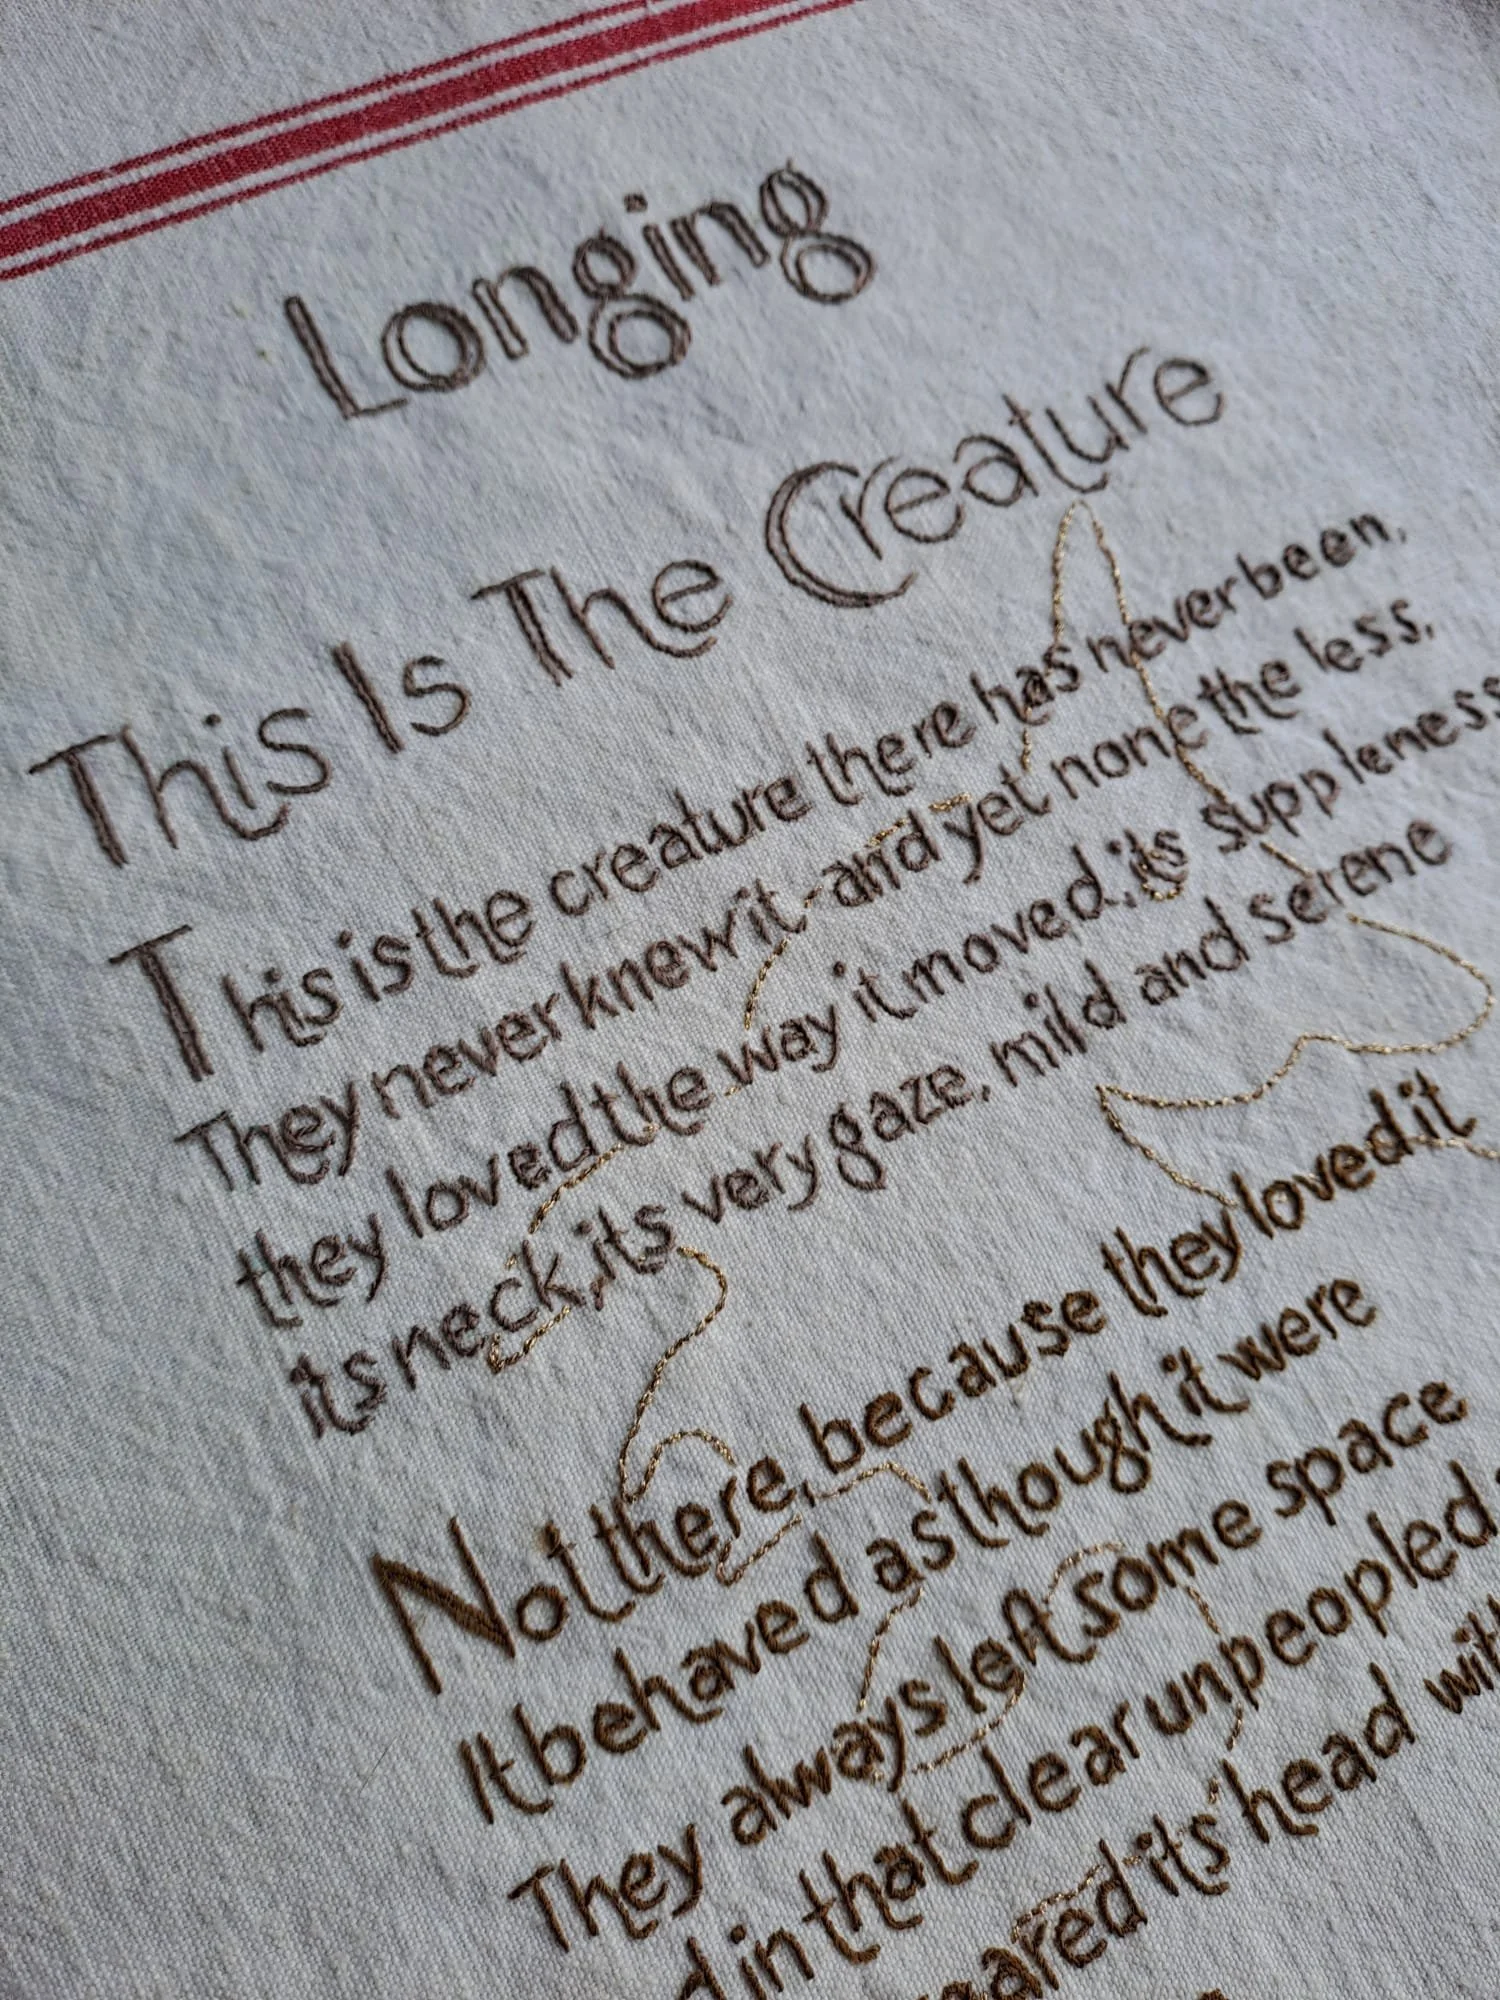 Longing
This Is The Creature
This is the creature there has never been,
They never knew it - and yet none the less,
they loved the way it moved, its suppleness
its neck, its very gaze, mild and serene
Not there, because they loved it
It behaved as though it were
They always left some space
in that clear unpeopled
its head